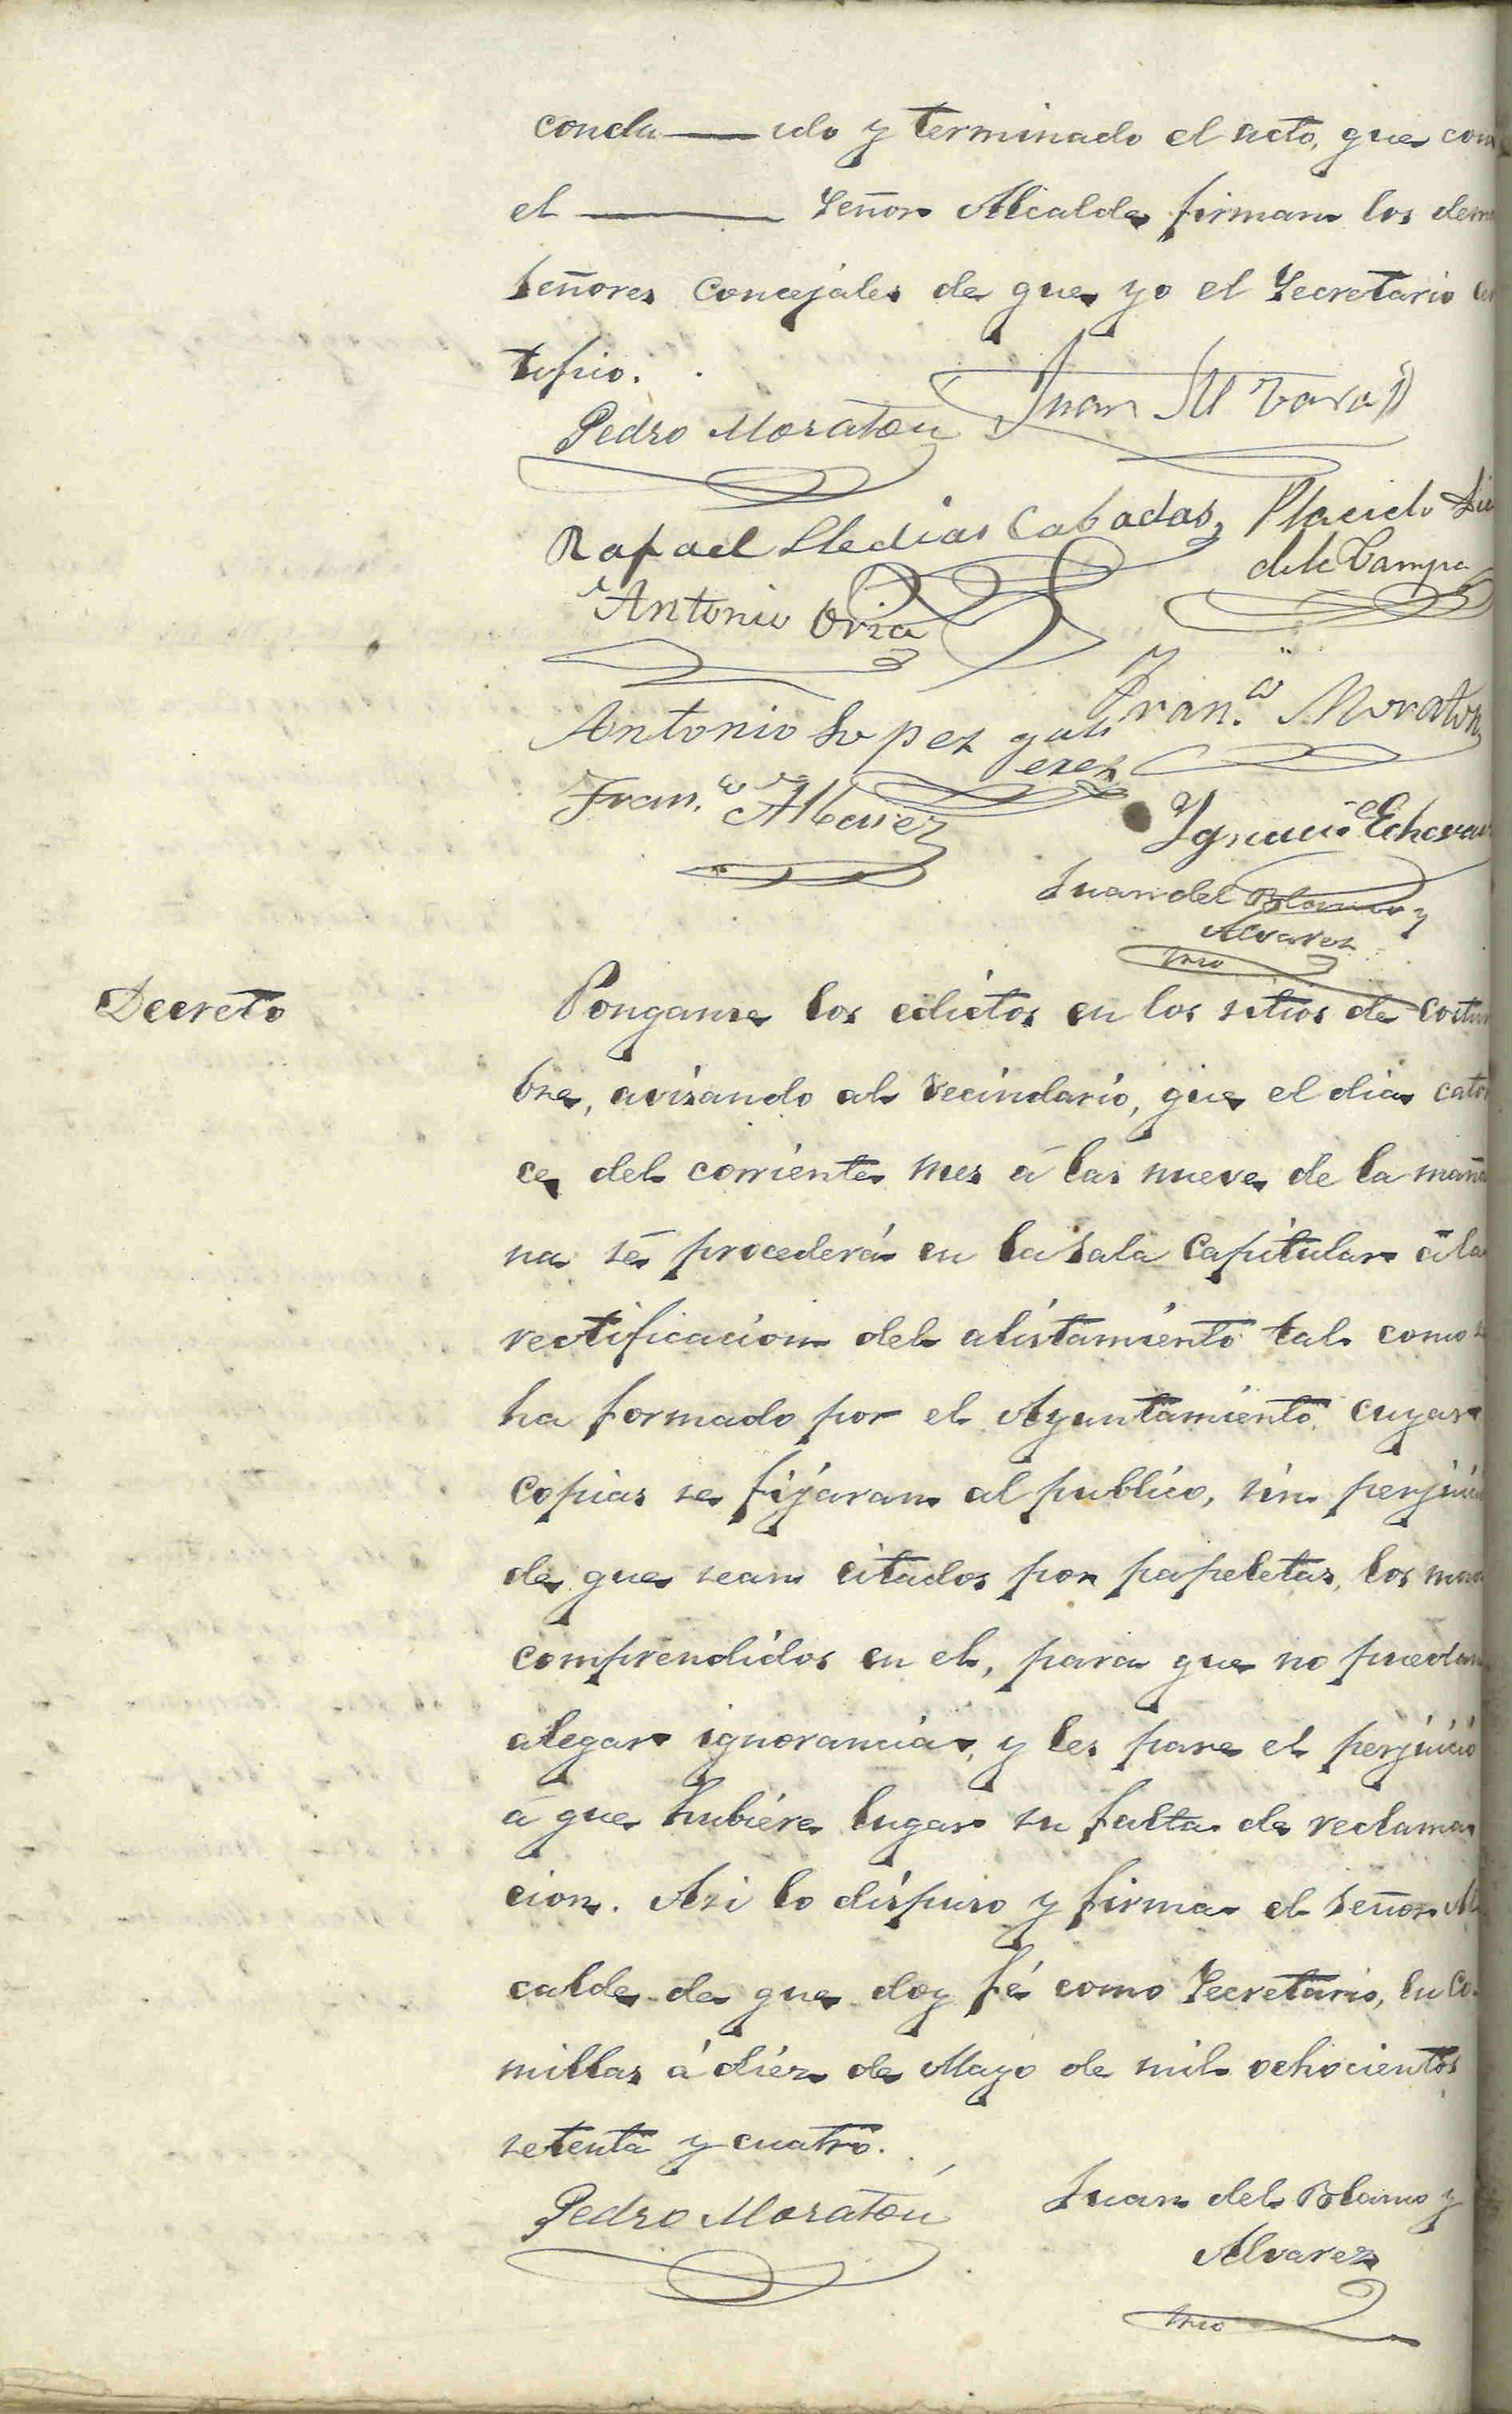 conclu — ido y terminado el acto, que con
el — Señor Alcalde firman los dem
Señores Concejales de que yo el Secretario cer
tifico.
Pedro Moratón
Juan M
Rafael Lledias Cabadas
Placido
de la Campa
Antonio Oria
Antonio Lopez guti
erez
Fran.co Moraton
Fran.co Albarez
Ignacio Echevar
Juan del Blanco y
Alvarez
Srio
Decreto
Ponganse los edictos en los sitios de costum
bre, avisando al vecindario, que el dia cator
ce del corriente mes á las nueve de la maña
na sé procederá en la sala Capitular á la
rectificacion del alistamiento tal como se
ha formado por el Ayuntamiento, cuyas
copias se fijaran al publico, sin perjuicio
de que sean citados por papeletas, los mozos
comprendidos en el, para que no puedan
alegar ignorancia, y les pare el perjuicio
á que hubiere lugar su falta de reclama
cion. Asi lo dispuso y firma el Señor Al
calde de que doy fé como Secretario, en Co-
millas á diez de Mayo de mil ochocientos
setenta y cuatro.
Pedro Moratón
Juan del Blanco y
Alvarez
Srio